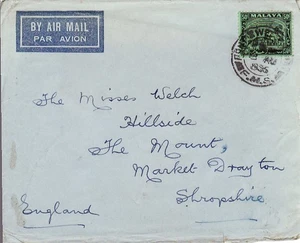 BY AIR MAIL
PAR AVION
MALAYA
1936
F.M.S.
The Misses Welch
Hillside
The Mount,
Market Drayton
Shropshire
England